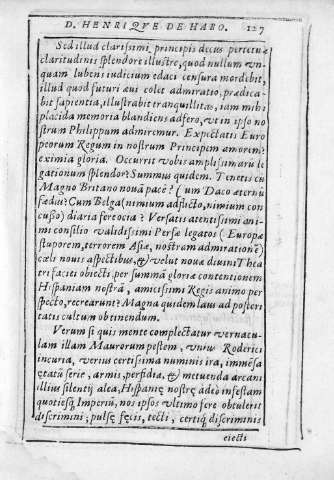 D. HENRIQVE DE HARO. 127
Sed illud clarissimi principis decus perpetuæ
claritudinis splendore illustre, quod nullum vn-
quam lubens iudicium edaci censura mordebit,
illud quod futuri æui colet admiratio, prædica-
bit sapientia, illustrabit tranquillitas, iam mihi
placida memoria blandiens adfero, vt in ipso no
strum Philippum admiremur. Expectatis Euro
peorum Regum in nostrum Principem amorem?
eximia gloria. Occurrit vobis amplissimarũ le
gationum splendor? Summus quidem. Tenetis cũ
Magno Britano nouã pacẽ? (um Daco æternũ
fœdus? Cum Belga (nimium adflicto, nimium con
cusso) diaria ferocia? Versatis atentissimi ani-
mi consilio validissimi Persæ legatos (Europæ
stuporem, terrorem Asiæ, nostram admirationẽ)
cœli nouis aspectibus, & velut nouæ diuini Thea
tri faciei obiecti, per summã gloriæ contentionem
Hispaniam nostrã, amicissimi Regis animo per
specto, recrearunt? Magna quidem laus ad posteri
tatis cultum obtinendum.
Verum si quis mente complectatur vernacu-
lam illam Maurorum pestem, vnius Roderici
incuria, verius certissima numinis ira, immẽsa
ętatũ serie, armis, perfidia, & metuenda arcani
illius silentij alea, Hispanię nostrę adeò infestam
quotiesq; Imperiũ, nos ipsos vltimo fere obtulerit
discrimini; pulsę fęcis, eiecti, certiq; discriminis
eiecti